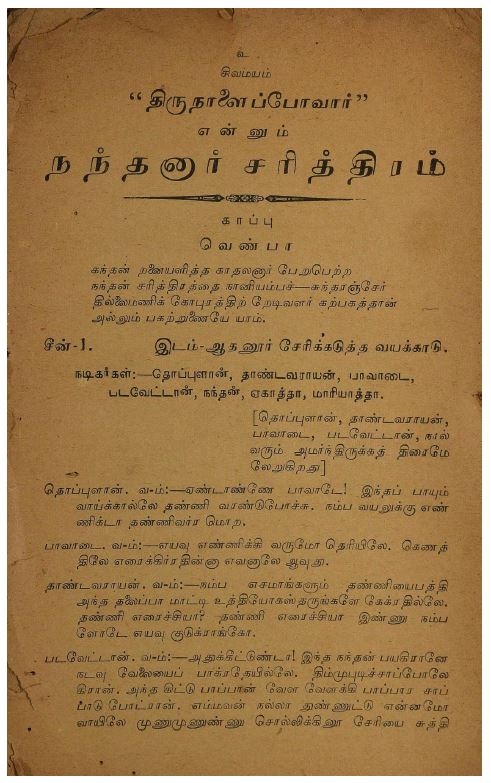 உ
சிவமயம்
“திருநாளைப்போவார்”
என்னும்
நந்தனார் சரித்திரம்
காப்பு
வெண்பா
கந்தன் றனையளித்த காதலனார் பேறுபெற்ற
நந்தன் சரித்திரத்தை நானியம்பச்—சுந்தரஞ்சேர்
தில்லைமணிக் கோபுரத்திற் றேடிவளர் கற்பகத்தான்
அல்லும் பகற்றுணையே யாம்.
சீன்-1. இடம்-ஆதனூர் சேரிக்கடுத்த வயக்காடு.
நடிகர்கள்:—தொப்புளான், தாண்டவராயன், பாவாடை,
படவேட்டான், நந்தன், ஏகாத்தா, மாரியாத்தா.
[தொப்புளான், தாண்டவராயன்,
பாவாடை, படவேட்டான், நால்
வரும் அமர்ந்திருக்கத் திரைமே
லேறுகிறது]
தொப்புளான். வ-ம்:—ஏண்டாண்ணே பாவாடே! இந்தப் பாயும்
வாய்க்கால்லே தண்ணி வரண்டுபோச்சு. நம்ப வயலுக்கு எண்
ணிக்டா தண்ணிவர்ச மொற.
பாவாடை. வ-ம்:—எயவு எண்ணிக்கி வருமோ தெரியிலே. கெணத்
திலே எரைச்கிர்தின்னா எவனாலே ஆவுது.
தாண்டவராயன். வ-ம்:—நம்ப எசமாங்களும் தண்ணியைபத்தி
அந்த தலைப்பா மாட்டி உத்தியோகஸ்தருங்களே கேக்ரதில்லே.
தண்ணி எரைச்சியா? தண்ணி எரைச்சியா இண்ணு நம்ப
ளோடே எயவு குடுக்ராங்கோ.
படவேட்டான். வ-ம்:—அதுக்கிட்டுண்டா! இந்த நந்தன் பயகிரானே
நடவு வேலையைப் பாக்ரதேயில்லே. திம்முபுடிச்சாப்போலே
கிரான். அந்த கிட்டு பாப்பான் வேள வேளக்கி பாப்பார சாப்
பாடு போட்ரான். எம்மவன் நல்லா துண்ணுட்டு என்னமோ
வாயிலே முணுமுணுண்ணு சொல்லிக்கினு சேரியை சுத்தி